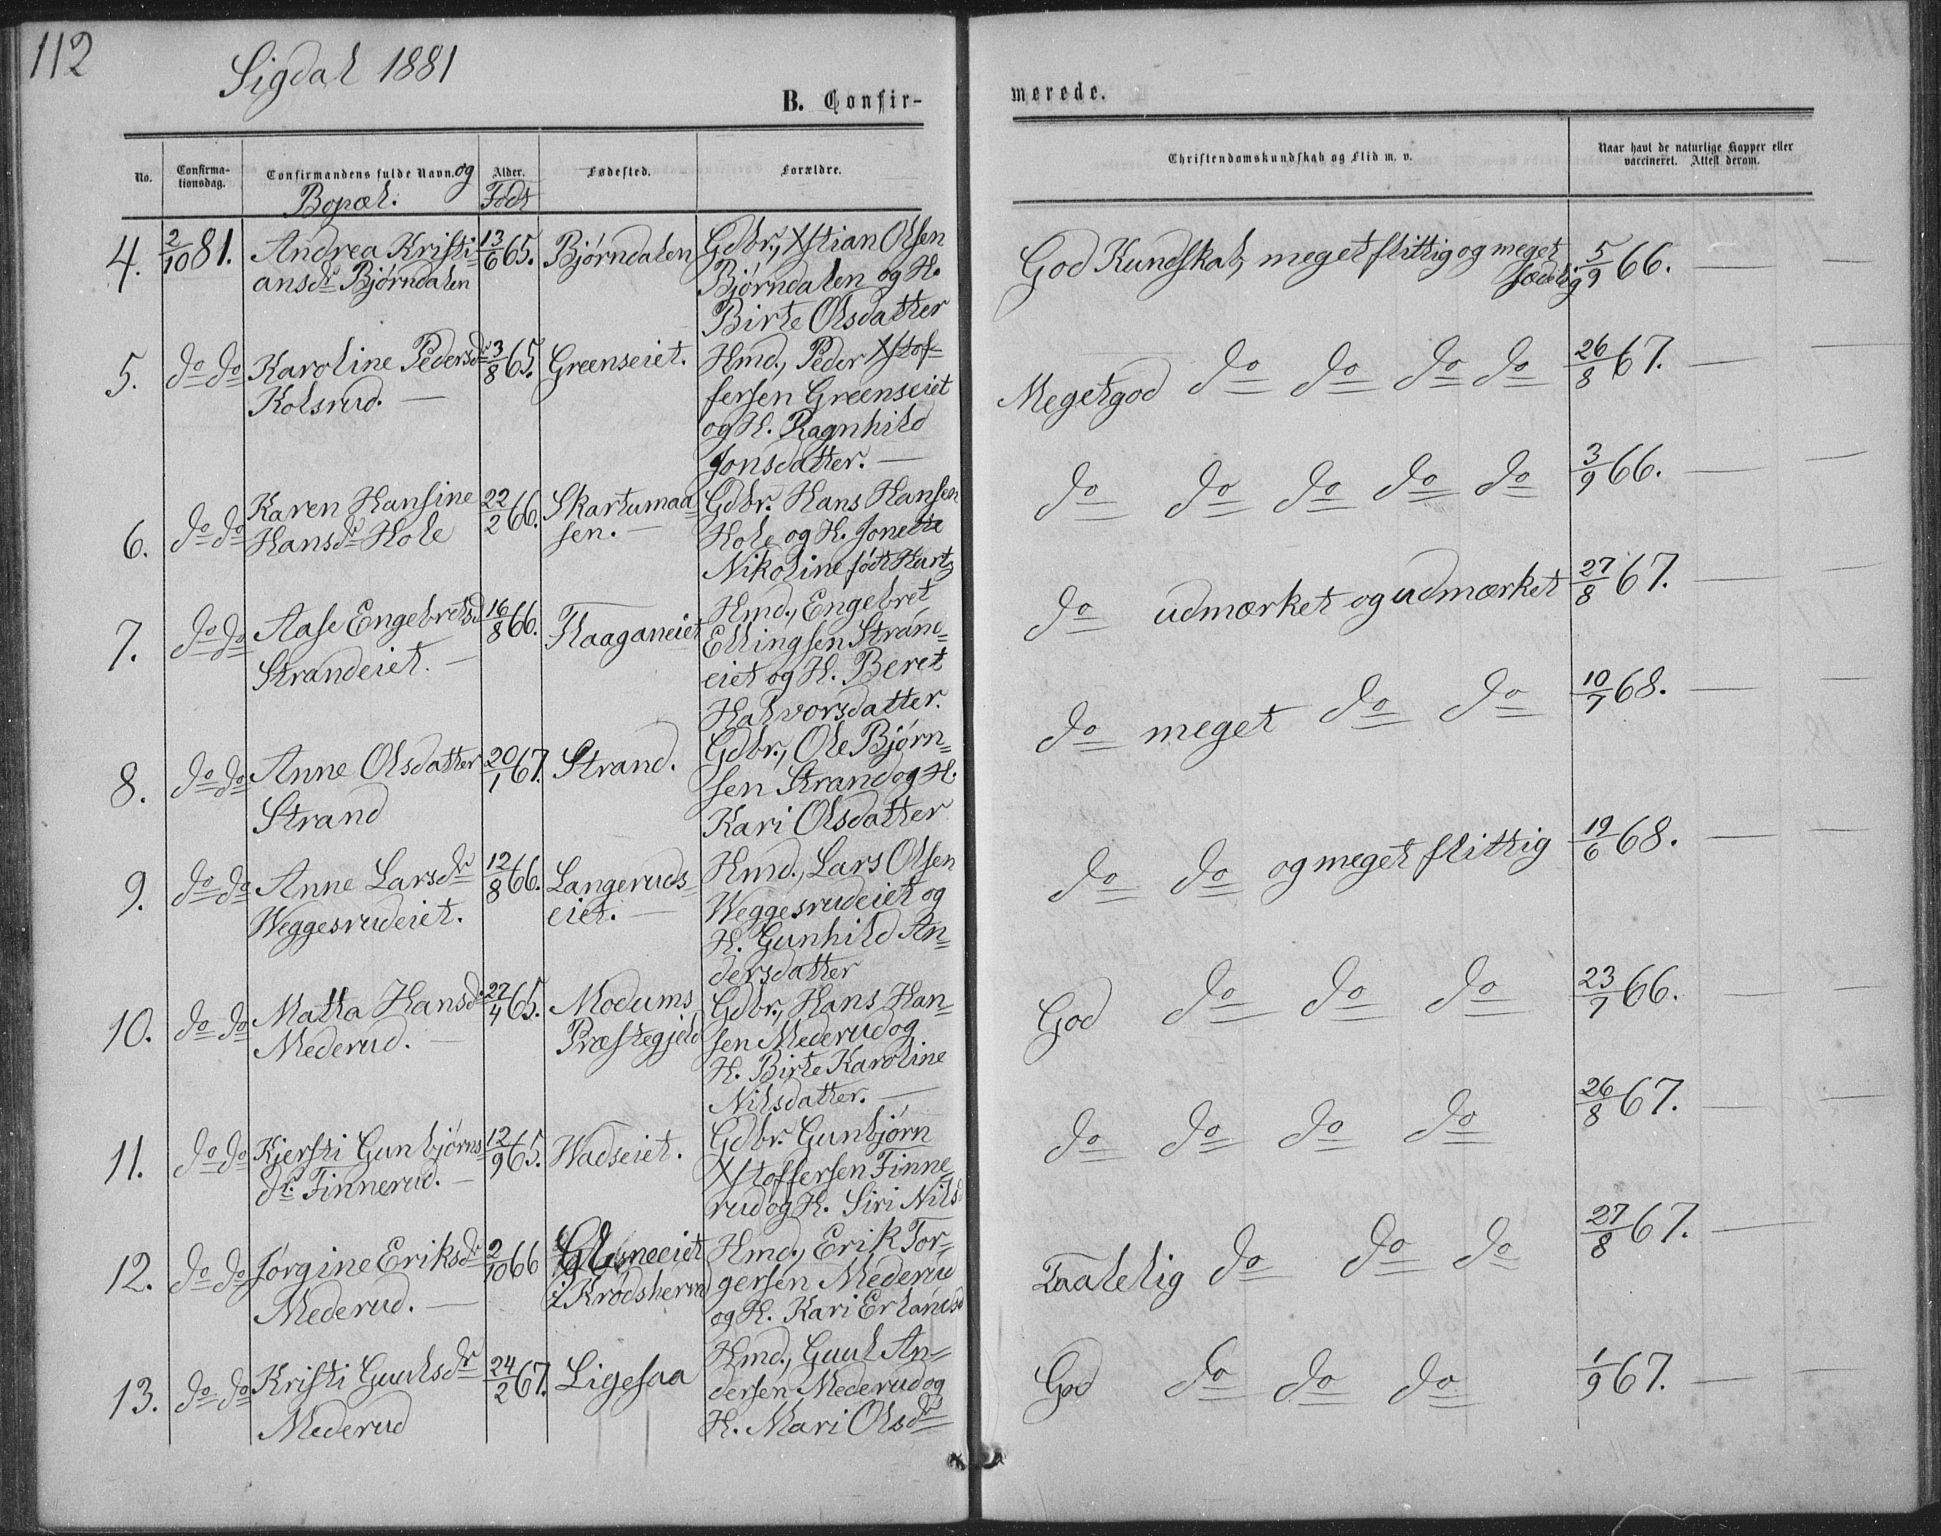 112
Sigdal 1881
B. Confir-
merede.
No.
Confirma-
tionsdag.
Confirmandens fulde Navn. og
Bopæl.
Alder.
Født
Fødested.
Forældre.
Christendomskundskab og Flid m. v.
Naar havt de naturlige Kopper eller
vaccineret. Attest derom.
4. 2/10 81. Andrea Kristi- 13/6 65. Bjørndalen Gdbr., Xstian Olsen
ansdr Bjørndalen Bjørndalen og H.
Birte Olsdatter
God Kundskab, meget flittig og meget
sædelig 5/9 66.
5. do do Karoline Pedersdr 3/8 65. Greenseiet. Hmd., Peder Xstof-
Kolsrud. fersen Greenseiet
og H. Ragnhild
Jonsdatter.
Megetgod do do do do 26/8 67.
6. do do Karen Hansine 22/2 66. Skartumaa- Gdbr. Hans Hansen
Hansdr Hole sen. Hole og H. Jonette
Nikoline født Hartz
do do do do do 3/9 66.
7. do do Aase Engebretsd 16/8 66. Haaganeiet Hmd., Engebret
Strandeiet. Ellingsen Strand=
eiet og H. Beret
Halvorsdatter.
do udmærket og udmærket 27/8 67.
8. do do Anne Olsdatter 20/1 67. Strand. Gdbr., Ole Bjørn=
Strand sen Strand og H.
Kari Olsdatter
do meget do do 10/7 68.
9. do do Anne Larsdr 12/8 66. Langeruds- Hmd., Lars Olsen
Weggesrudeiet. eiet. Weggesrudeiet og
H. Gunhild An=
dersdatter
do do og meget flittig 19/6 68.
10. do do Mathea Hansd. 27/4 65. Modums Gdbr., Hans Han-
Mederud. Præstegjeld sen Mederud og
H. Birte Karoline
Nilsdatter.
God do do do 23/7 66.
11. do do Kjersti Gunbjørns 12/9 65. Wadseiet. Gdbr. Gunbjørn
dr. Finnerud. Xstoffersen Finne-
rud og H. Siri Nilsd
do do do do 26/8 67.
12. do do Jørgine Eriksdr 2/10 66 Hmd., Erik Tor-
Mederud. i Krødsherred gersen Mederud
og H. Kari Erlandsd
Taalelig do do do 27/8 67.
13. do do Kristi Guulsdr 24/2 67. Ligesaa Hmd., Guul An=
Mederud dersen Mederud og
H. Mari Olsdr
God do do do 1/9 67.